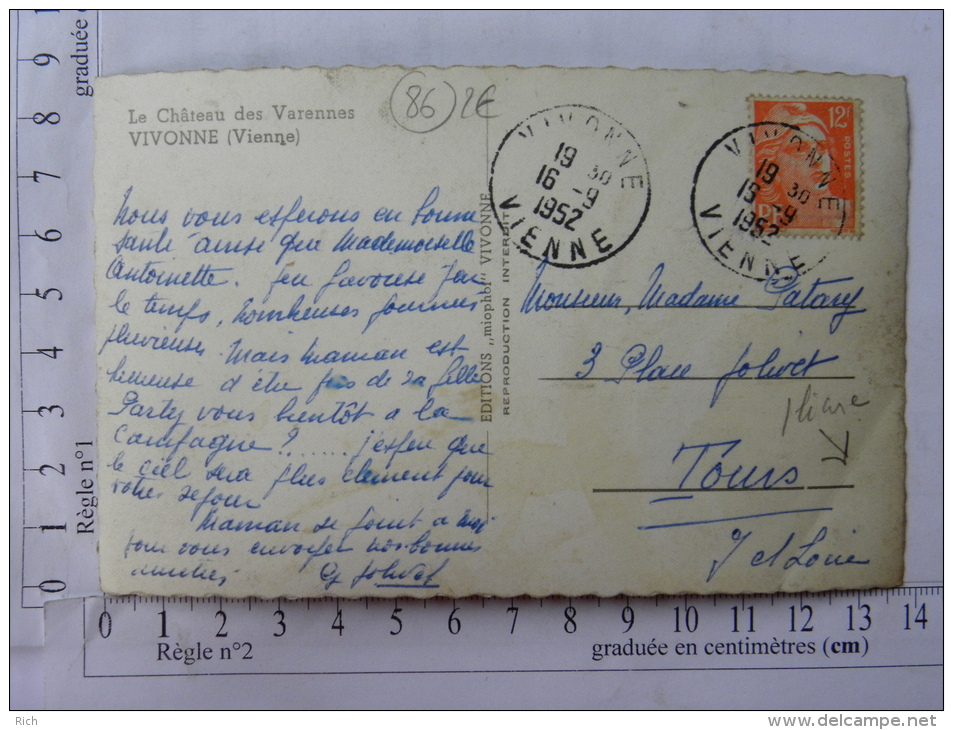 Le Château des Varennes
VIVONNE (Vienne)
86 2€
VIVONNE
19 30
16 -9
1952
VIENNE
VIVONNE
19 30
16 -9
1952
VIENNE
12F
POSTES
RF
Nous vous espérons en bonne
santé ainsi que Mademoiselle
Antoinette. peu favorisé par
le temps, nombreuses journées
pluvieuses. Mais Maman est
heureuse d'être près de sa fille
Partez vous bientôt à la
campagne ?...... j'espère que
le ciel sera plus clement pour
votre séjour
Maman se joint à moi
pour vous envoyer nos bonnes
amitiés. Jolivet
EDITIONS „miophot" VIVONNE
REPRODUCTION INTERDITE
Monsieur, Madame
3 Place Jolivet
pliure
Tours
I et Loire
0 1 2 3 4 5 6 7 8 9 10 11 12 13 14
Règle n°2 graduée en centimètres (cm)
0 1 2 3 4 5 6 7 8 9
Règle n°1 graduée
Rich
www.delcampe.net